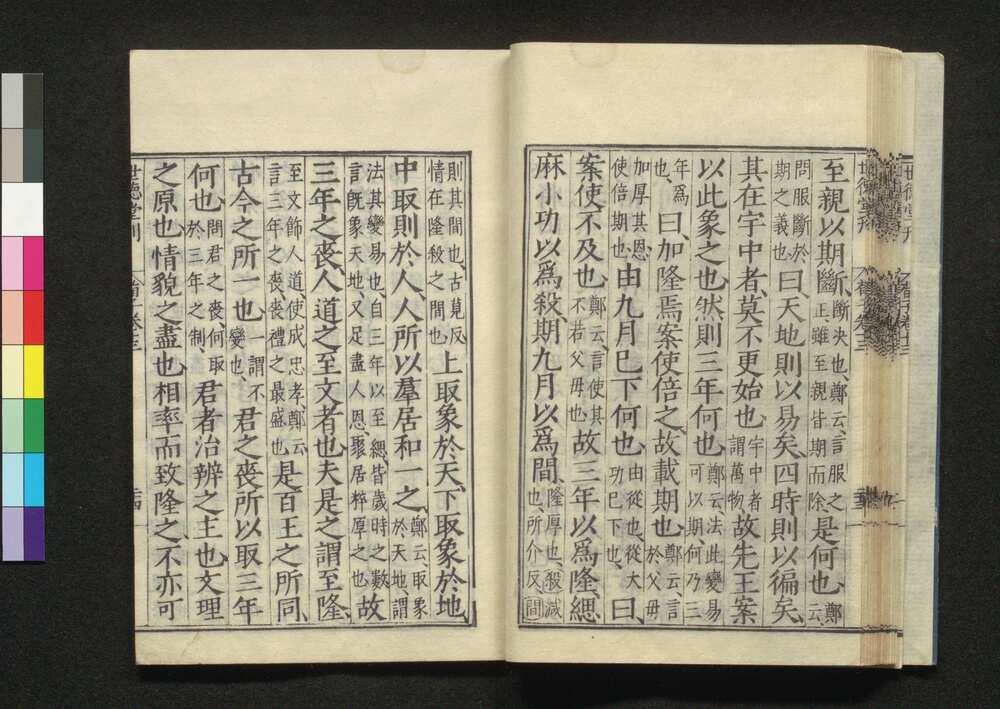 至親以期斷、斷決也、鄭云、言服之正雖至親皆期而除也是何也、鄭云、
問服斷於期之義也曰、天地則以易矣、四時則以徧矣、
其在宇中者、莫不更始也、宇中者謂萬物故先王案
以此象之也、然則三年何也、鄭云、法此變易可以期、何乃三
年爲也、曰、加隆焉、案使倍之、故載期也、鄭云、言於父母
加厚其恩使倍期也由九月已下何也、由從也、從大功已下也、曰、
案使不及也、鄭云、言使其不若父母也故三年以爲隆、緦
麻小功以爲殺、期九月以爲間、隆厚也、殺減也、所介反間
則其間也、古莧反情在隆殺之間也上取象於天、下取象於地、
中取則於人、人所以羣居和一之、鄭云、取象於天地、謂
法其變易也、自三年以至緦皆歲時之數言旣象天地又足盡人恩、聚居粹厚之也故
三年之喪、人道之至文者也、夫是之謂至隆、
至文飾人道使成忠孝、鄭云言三年之喪喪禮之最盛也是百王之所同、
古今之所一也、一謂不變也、君之喪所以取三年
何也、問君之喪、何取於三年之制、君者治辨之主也、文理
之原也、情貌之盡也、相率而致隆之、不亦可
世德堂刊